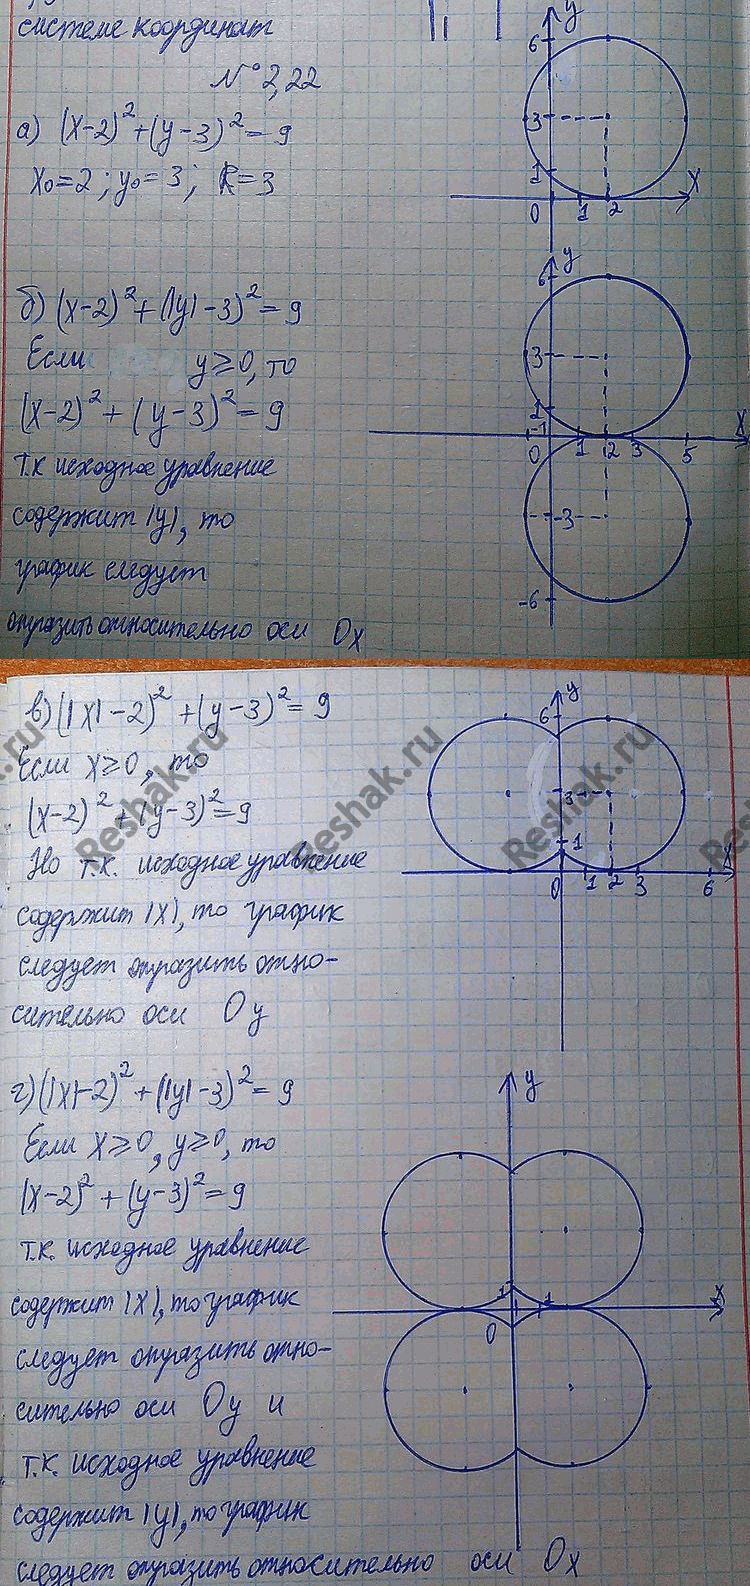 системе координат
№ 2,22
а) (x-2)² + (y-3)² = 9
x₀=2; y₀=3; R=3
y
6
3
1
0
1
2
x
б) (x-2)² + (|y|-3)² = 9
Если y≥0, то
(x-2)² + (y-3)² = 9
т.к исходное уравнение
содержит |y|, то
график следует
отразить относительно оси Ox
y
6
3
1
-1
0
1
2
3
5
x
-3
-6
в) (|x|-2)² + (y-3)² = 9
Если x≥0, то
(x-2)² + (y-3)² = 9
Но т.к. исходное уравнение
содержит |x|, то график
следует отразить отно-
сительно оси Oy
y
6
3
1
0
1
2
3
6
x
Reshak.ru
Reshak.ru
Reshak.ru
г) (|x|-2)² + (|y|-3)² = 9
Если x≥0, y≥0, то
(x-2)² + (y-3)² = 9
т.к. исходное уравнение
содержит |x|, то график
следует отразить отно-
сительно оси Oy и
т.к. исходное уравнение
содержит |y|, то график
следует отразить относительно оси Ox
y
1
0
1
x